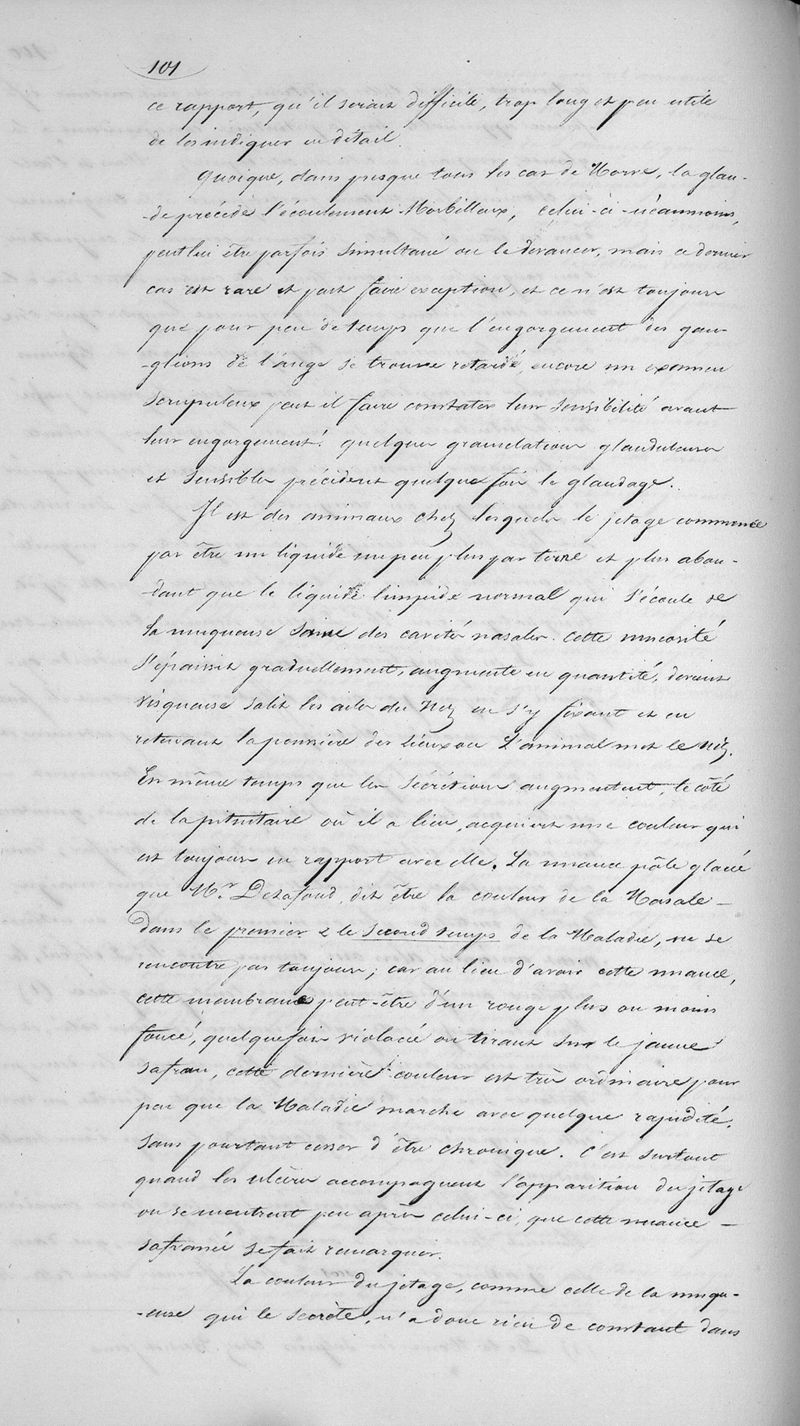 101
ce rapport, qu'il serait difficile, trop long et peu utile
de les indiquer en détail.
Quoique, dans presque tous les cas de Morve, la glan-
-de précède l'écoulement Morbilleux, celui-ci néanmoins,
peut lui être parfois simultané ou le devancer, mais ce dernier
cas est rare et peut faire exception, et ce n'est toujours
que pour peu de temps que l'engorgement des gan-
-glions de l'auge se trouve retardé, encore un examen
scrupuleux peut il faire constater leur sensibilité avant
leur engorgement. quelques granulations glanduleuses
et sensibles précèdent quelque fois le glandage.
Il est des animaux chez lesquels le jetage commence
par être un liquide un peu plus par terne et plus abon-
-dant que le liquide limpide normal qui s'écoule de
la muqueuse saine des cavités nasales. cette mucosité
s'épaissit graduellement, augmente en quantité, devient
visqueuse salit les ailes du Nez en s'y fixant et en
retenant la poussière des lieux ou l'animal met le nez.
En même temps que les sécrétions augmentent, le côté
de la pituitaire où il a lieu, acquiert une couleur qui
est toujours en rapport avec elle. La nuance pâle glacée
que Mr. Delafond, dit être la couleur de la Nasale -
dans le premier & le second temps de la Maladie, ne se
rencontre pas toujours; car au lieu d'avoir cette nuance,
cette membrane peut-être d'un rouge plus ou moins
foncé, quelquefois violacé ou tirant sur le jaune
safran, cette dernière couleur est très ordinaire pour
peu que la Maladie marche avec quelque rapidité,
sans pourtant cesser d'être chronique. C'est surtout
quand les ulcères accompagnent l'apparition du jetage
ou se montrent peu après celui-ci, que cette nuance -
safranée se fait remarquer.
La couleur du jetage, comme celle de la muqu-
-euse qui le secrète, n'a donc rien de constant dans